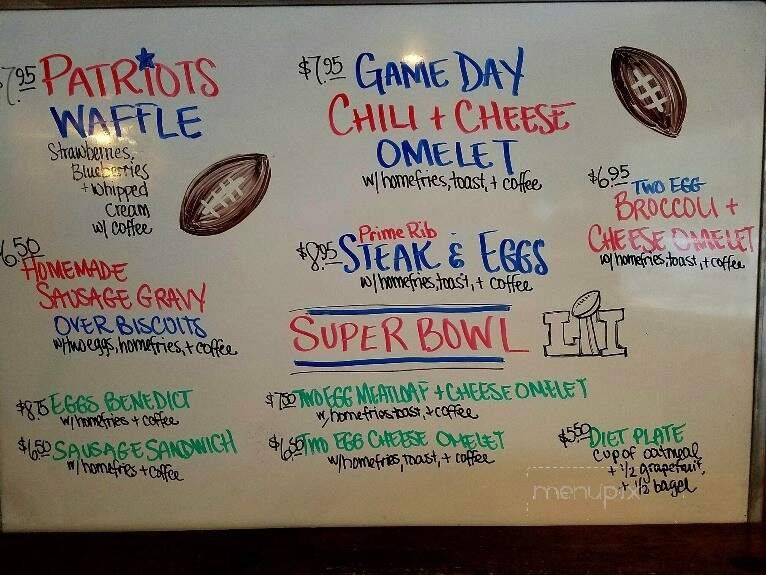 $7.95 PATRIOTS
WAFFLE
Strawberries,
Blueberries
+ whipped
Cream
w/ coffee
$7.95 GAME DAY
CHILI + CHEESE
OMELET
w/ homefries, toast, + coffee
$6.95 TWO EGG
BROCCOLI +
CHEESE OMELET
w/ homefries, toast, + coffee
6.50
HOMEMADE
SAUSAGE GRAVY
OVER BISCUITS
w/ two eggs, homefries, + coffee
Prime Rib
$8.95 STEAK & EGGS
w/ homefries, toast, + coffee
SUPER BOWL LI
$8.75 EGGS BENEDICT
w/ homefries + coffee
$6.50 SAUSAGE SANDWICH
w/ homefries + coffee
$7.50 TWO EGG MEATLOAF + CHEESE OMELET
w/ homefries, toast, + coffee
$6.50 TWO EGG CHEESE OMELET
w/ homefries, toast, + coffee
$5.50 DIET PLATE
cup of oatmeal
+ 1/2 grapefruit,
+ 1/2 bagel
menupix